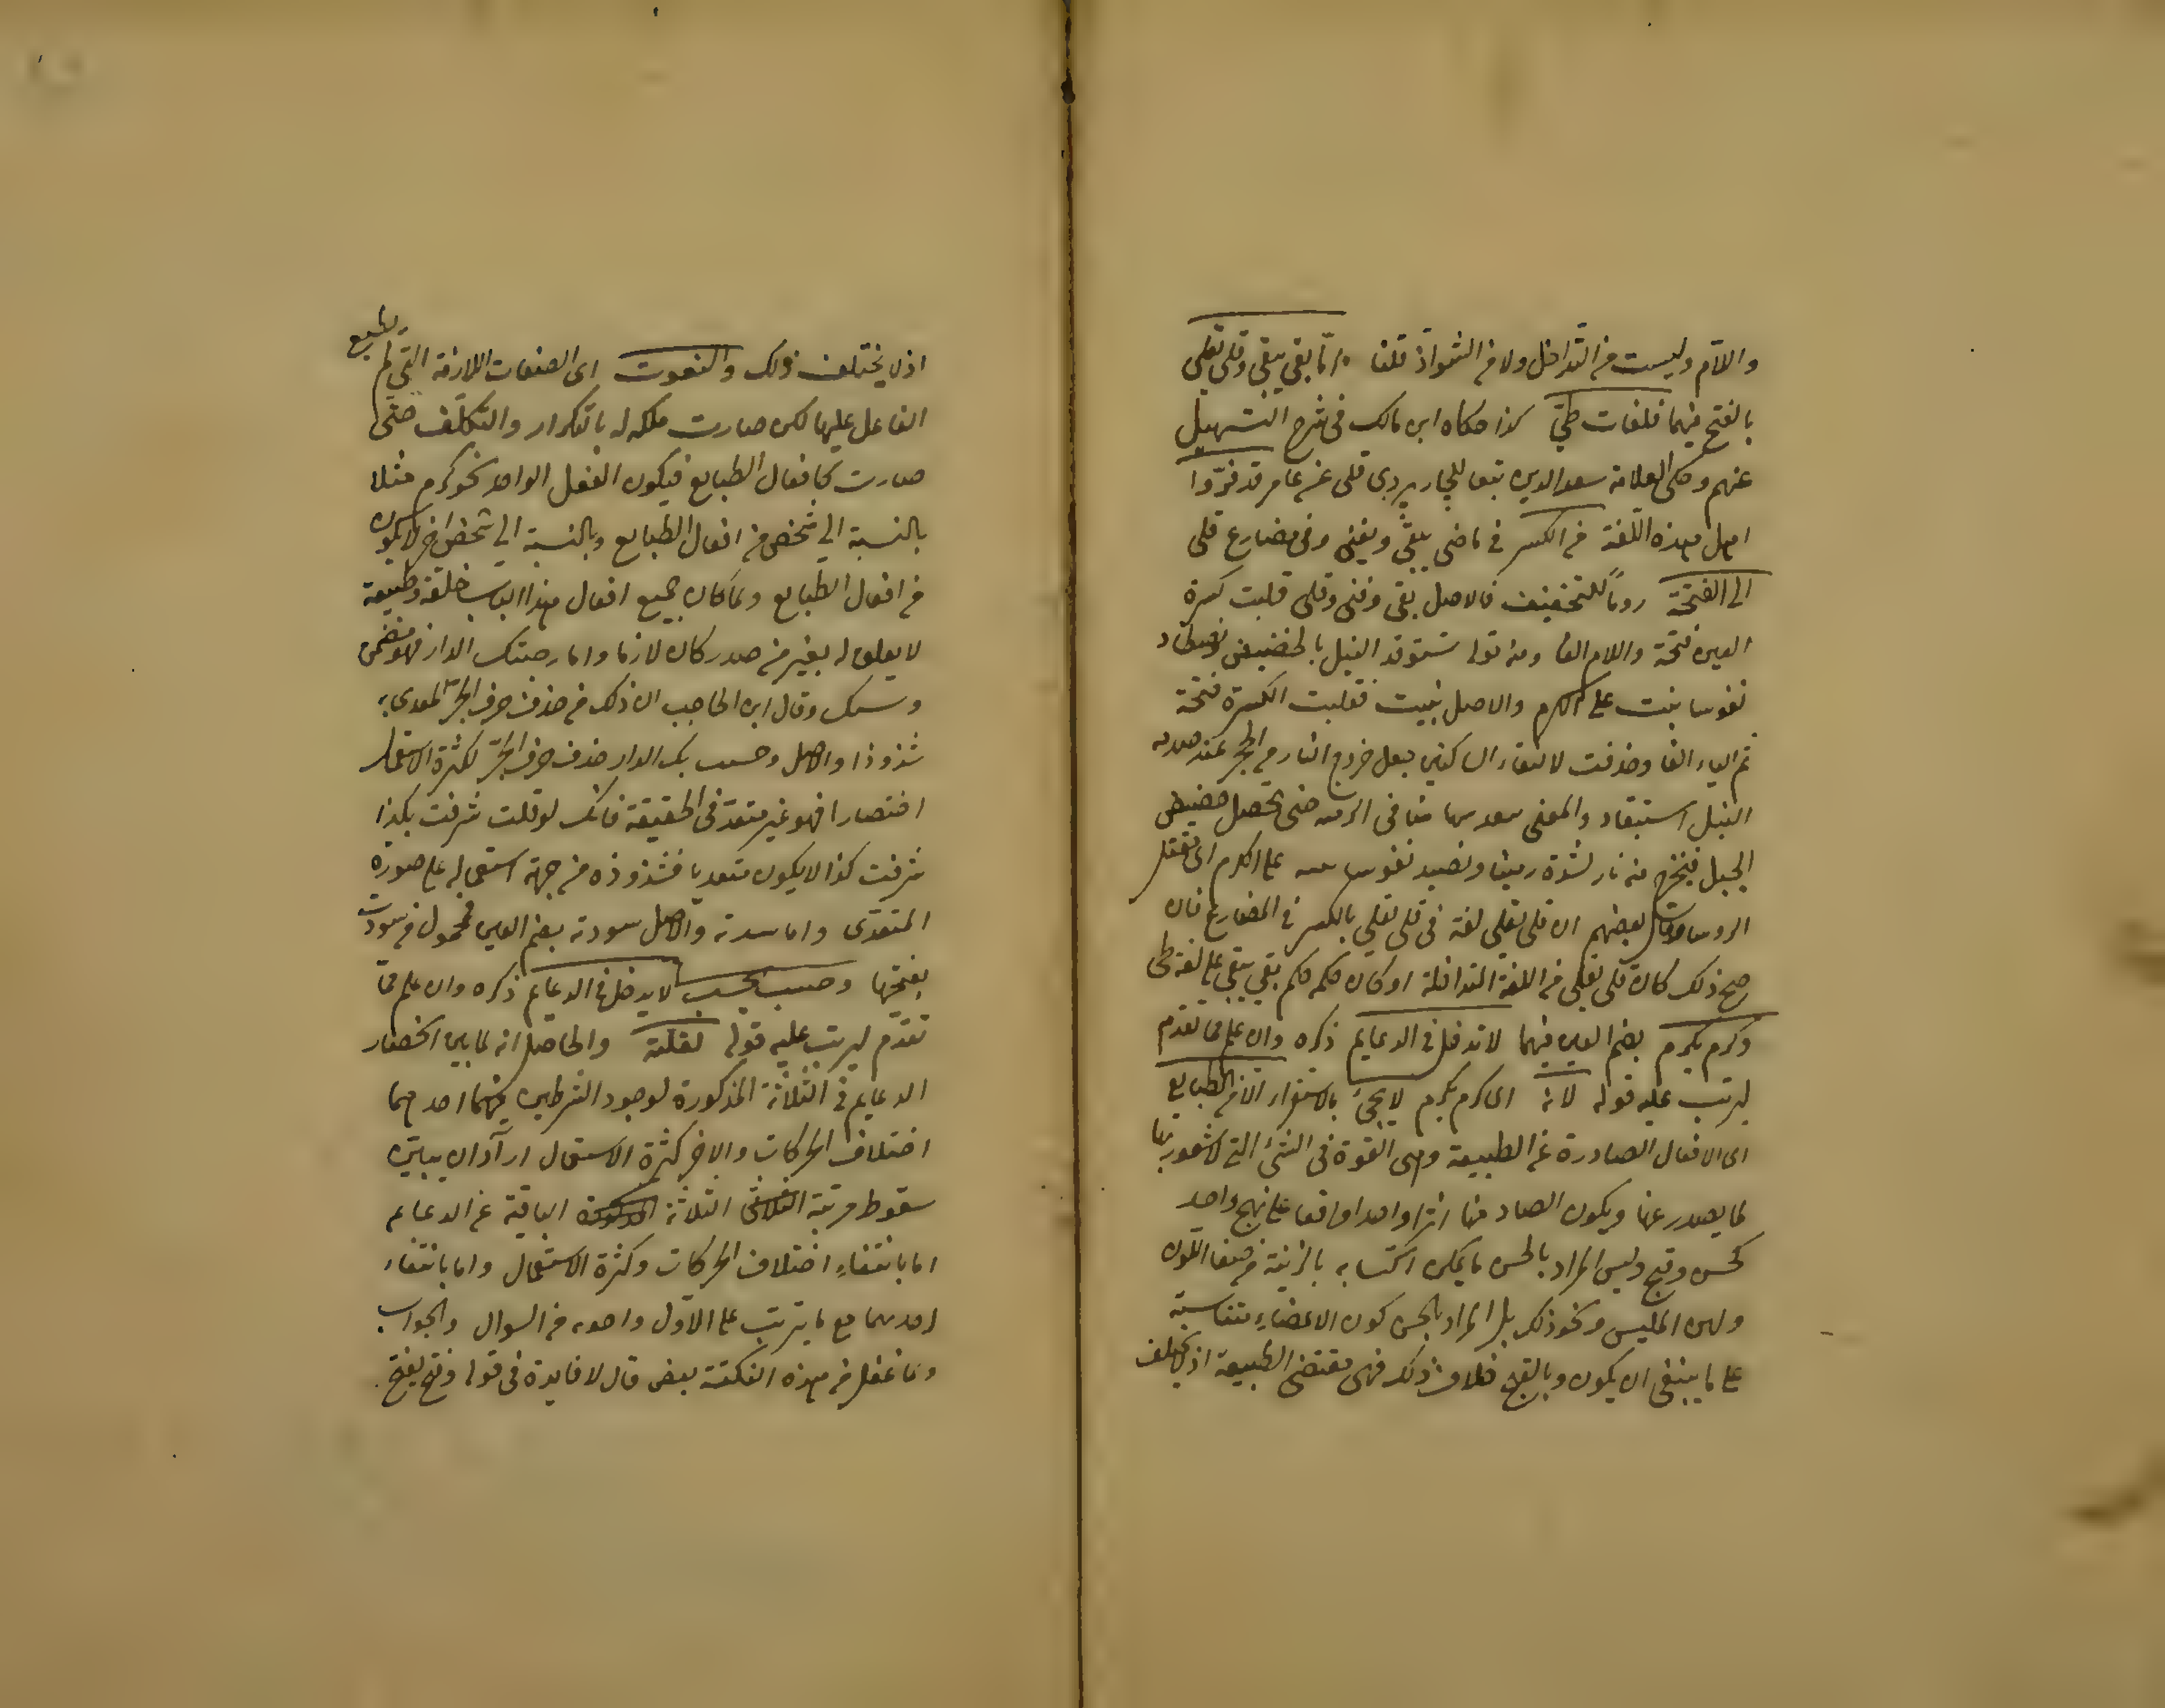 واللام وليست من التداخل ولا من الشواذ قلنا امّا بقى يبقى وقلى يقلى
بالفتح فيهما فلغات طيّ كذا حكاه ابن مالك في شرح التسهيل
عنهم وحكى العلامة سعد الدين تبعا للجاربردى قلى عن عامر قد فرّوا
اهل هذه اللّغة من الكسر في ماضى يبقى ويفنى وفى مضارع قلى
الى الفتحة روماً للتخفيف فالاصل بقى وفنى وقلى قلبت كسرة
العين فتحة واللام الفا ومنه قوله نستوقد النبل بالحضيض ونصطاد
نفوسا بنت على الكرم والاصل بنيت فقلبت الكسرة فتحة
ثم الياء الفا وحذفت لالتقاء الساكنين جعل خروج النار من الحجر عند صدمه
النبل استيقاد والمعنى سهامنا في الرمى حتى تحصل حضيض
الجبل فيخرج منه نار لشدة رمينا ونصيد نفوسا على الكرم اى نقتل
الروسا وقال بعضهم ان قلى يقلى لغة فى قلى يقلى بالكسر في المضارع فان
صح ذلك كان قلى يقلى من اللغة المتداخلة او كان حكمه حكم بقى يبقى على لغة طى
وكرم يكرم بضم العين فيهما لا تدخل في الدعايم ذكره وان علم مما تقدم
ليرتب عليه قوله لانه اى كرم يكرم لا يجئ بالاستقرار الا من الطبايع
اى الافعال الصادرة عن الطبيعة وهى القوة فى الشئ التى لا شعور لها
لما يصدر عنها ويكون الصادر منها اثرا واحدا واقعا على نهج واحد
كحسن وقبح وليس المراد بالحسن ما يمكن اكتسابه بالزينة من صفا اللون
ولين الملبس ونحو ذلك بل المراد بالحسن كون الاعضاء متناسبة
على ما ينبغى ان يكون وبالقبح خلاف ذلك فهى مقتضى الطبيعة اذ لا يختلف
اذ لا يختلف ذلك والنعوت اى الصفات اللازمة التى لم يطبع
الفاعل عليها لكن صارت ملكه له بالتكرار والتكلّف حتّى
صارت كافعال الطبايع فيكون الفعل الواحد نحو كرم مثلا
بالنسبة الى شخص من افعال الطبايع وبالنسبة الى شخص اخر لا يكون
من افعال الطبايع ولما كان جميع افعال هذا الباب خلقة وطبيعة
لا تعلق له بغير من صدر كان لازما واما رحبتك الدار فهو متضمن
وسعك وقال ابن الحاجب ان ذلك من حذف حرف الجر المعدى به
شذوذا والاصل رحبت بك الدار حذف حرف الجرّ لكثرة الاستعمال
اختصارا فهو غير متعد فى الحقيقة فانك لو قلت شرفت بكذا
شرفت كذا لا يكون متعديا فشذوذه من جهة استعماله على صورة
المتعدى واما سدته والاصل سودته بضم العين فمحمول من سودت
بفتحها وحسب يحسب لا يدخل في الدعايم ذكره وان علم ممّا
تقدم ليرتب عليه قوله لقلته والحاصل انه لما بين انحصار
الدعايم فى الثلاثة المذكورة لوجود الشرطين فيهما احدهما
اختلاف الحركات والاخر كثرة الاستعمال اراد ان يبين
سقوط مرتبة الثلاثة الباقية عن الدعايم
اما بانتفاء اختلاف الحركات وكثرة الاستعمال واما بانتفاء
احدهما مع ما يترتب على الاول واحده من السوال والجواب
وما غفل من هذه النكتة بعض قال لا فايدة فى قوله وفتح يفتح